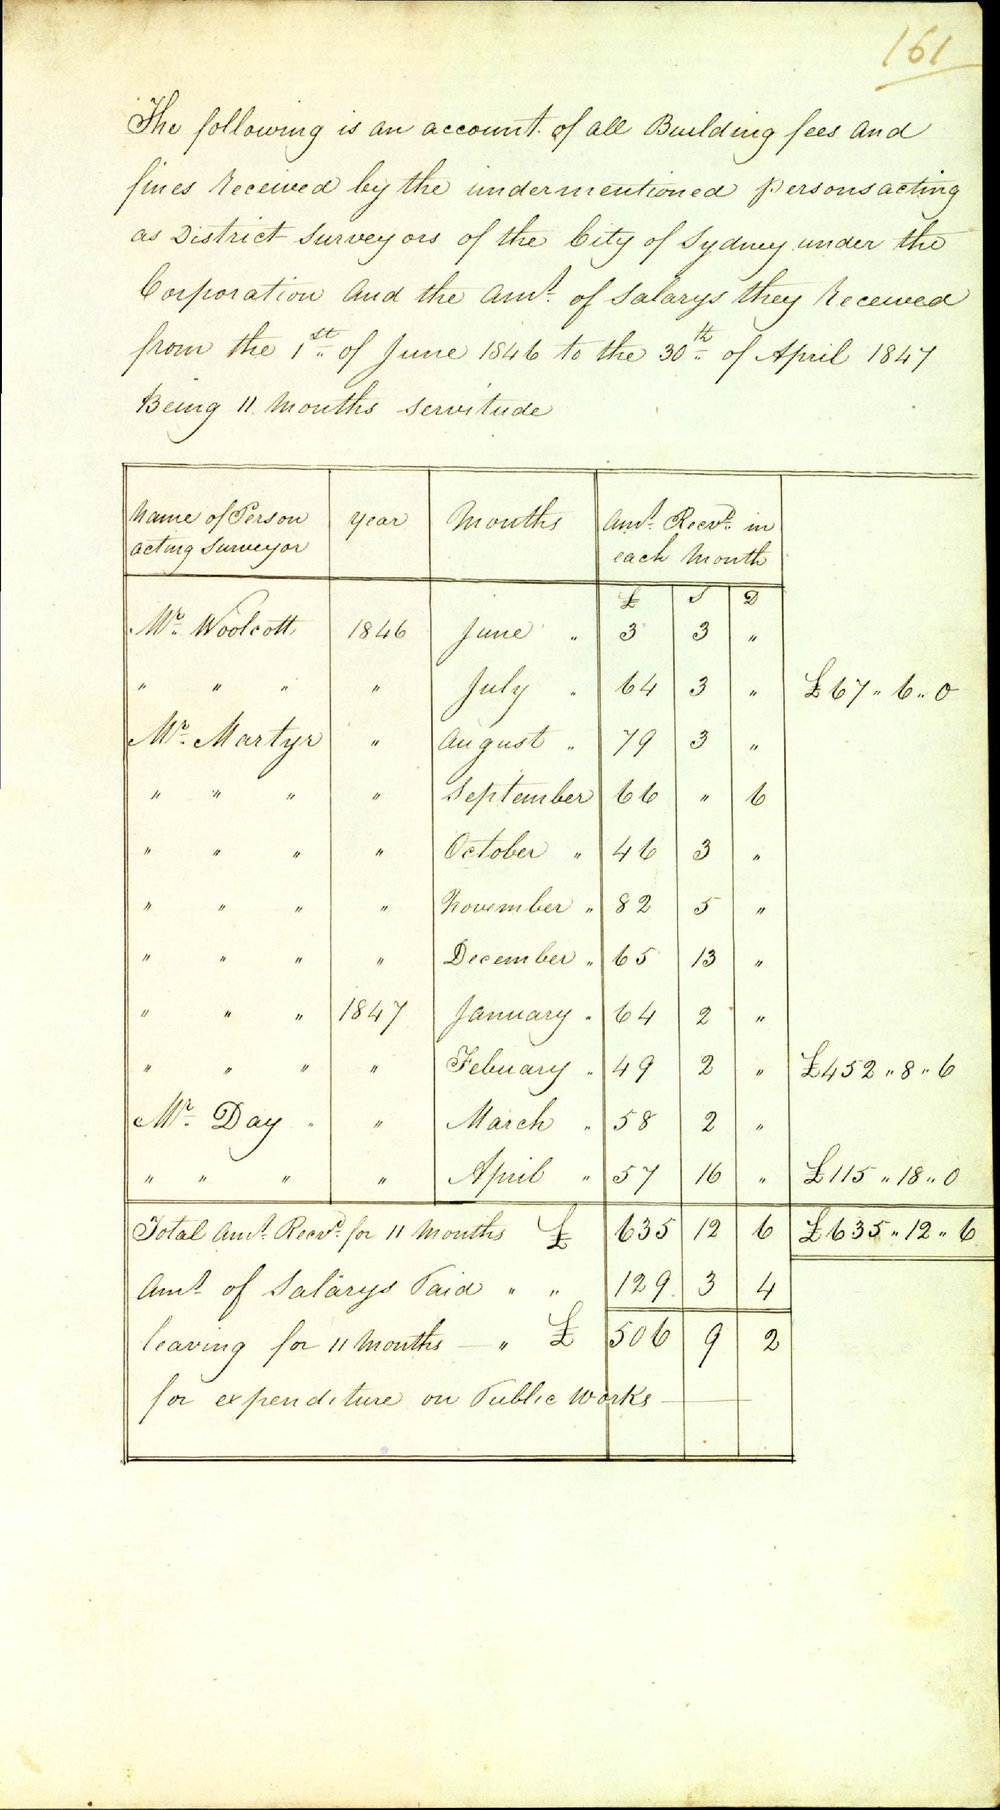 161
The following is an account of all Building fees and
fines Received by the undermentioned persons acting
as District Surveyors of the City of Sydney under the
Corporation and the Amt. of Salarys they Received
from the 1st of June 1846 to the 30th of April 1847
Being 11 Months Servitude
Name of Person acting Surveyor | Year | Months | Amt. Recvd. in each Month
£ S D
Mr. Woolcott 1846 June " 3 3 "
" " " " July " 64 3 " £67 " 6 " 0
Mr. Martyr " August " 79 3 "
" " " " September 66 " 6
" " " " October " 46 3 "
" " " " November " 82 5 "
" " " " December " 65 13 "
" " " 1847 January " 64 2 "
" " " " Febuary " 49 2 " £452 " 8 " 6
Mr. Day " " March " 58 2 "
" " " " April " 57 16 " £115 " 18 " 0
Total Amt. Recvd. for 11 Months £ 635 12 6 £635 " 12 " 6
Amt of Salarys Paid " " 129 3 4
leaving for 11 Months — " £ 506 9 2
for expenditure on Public Works —